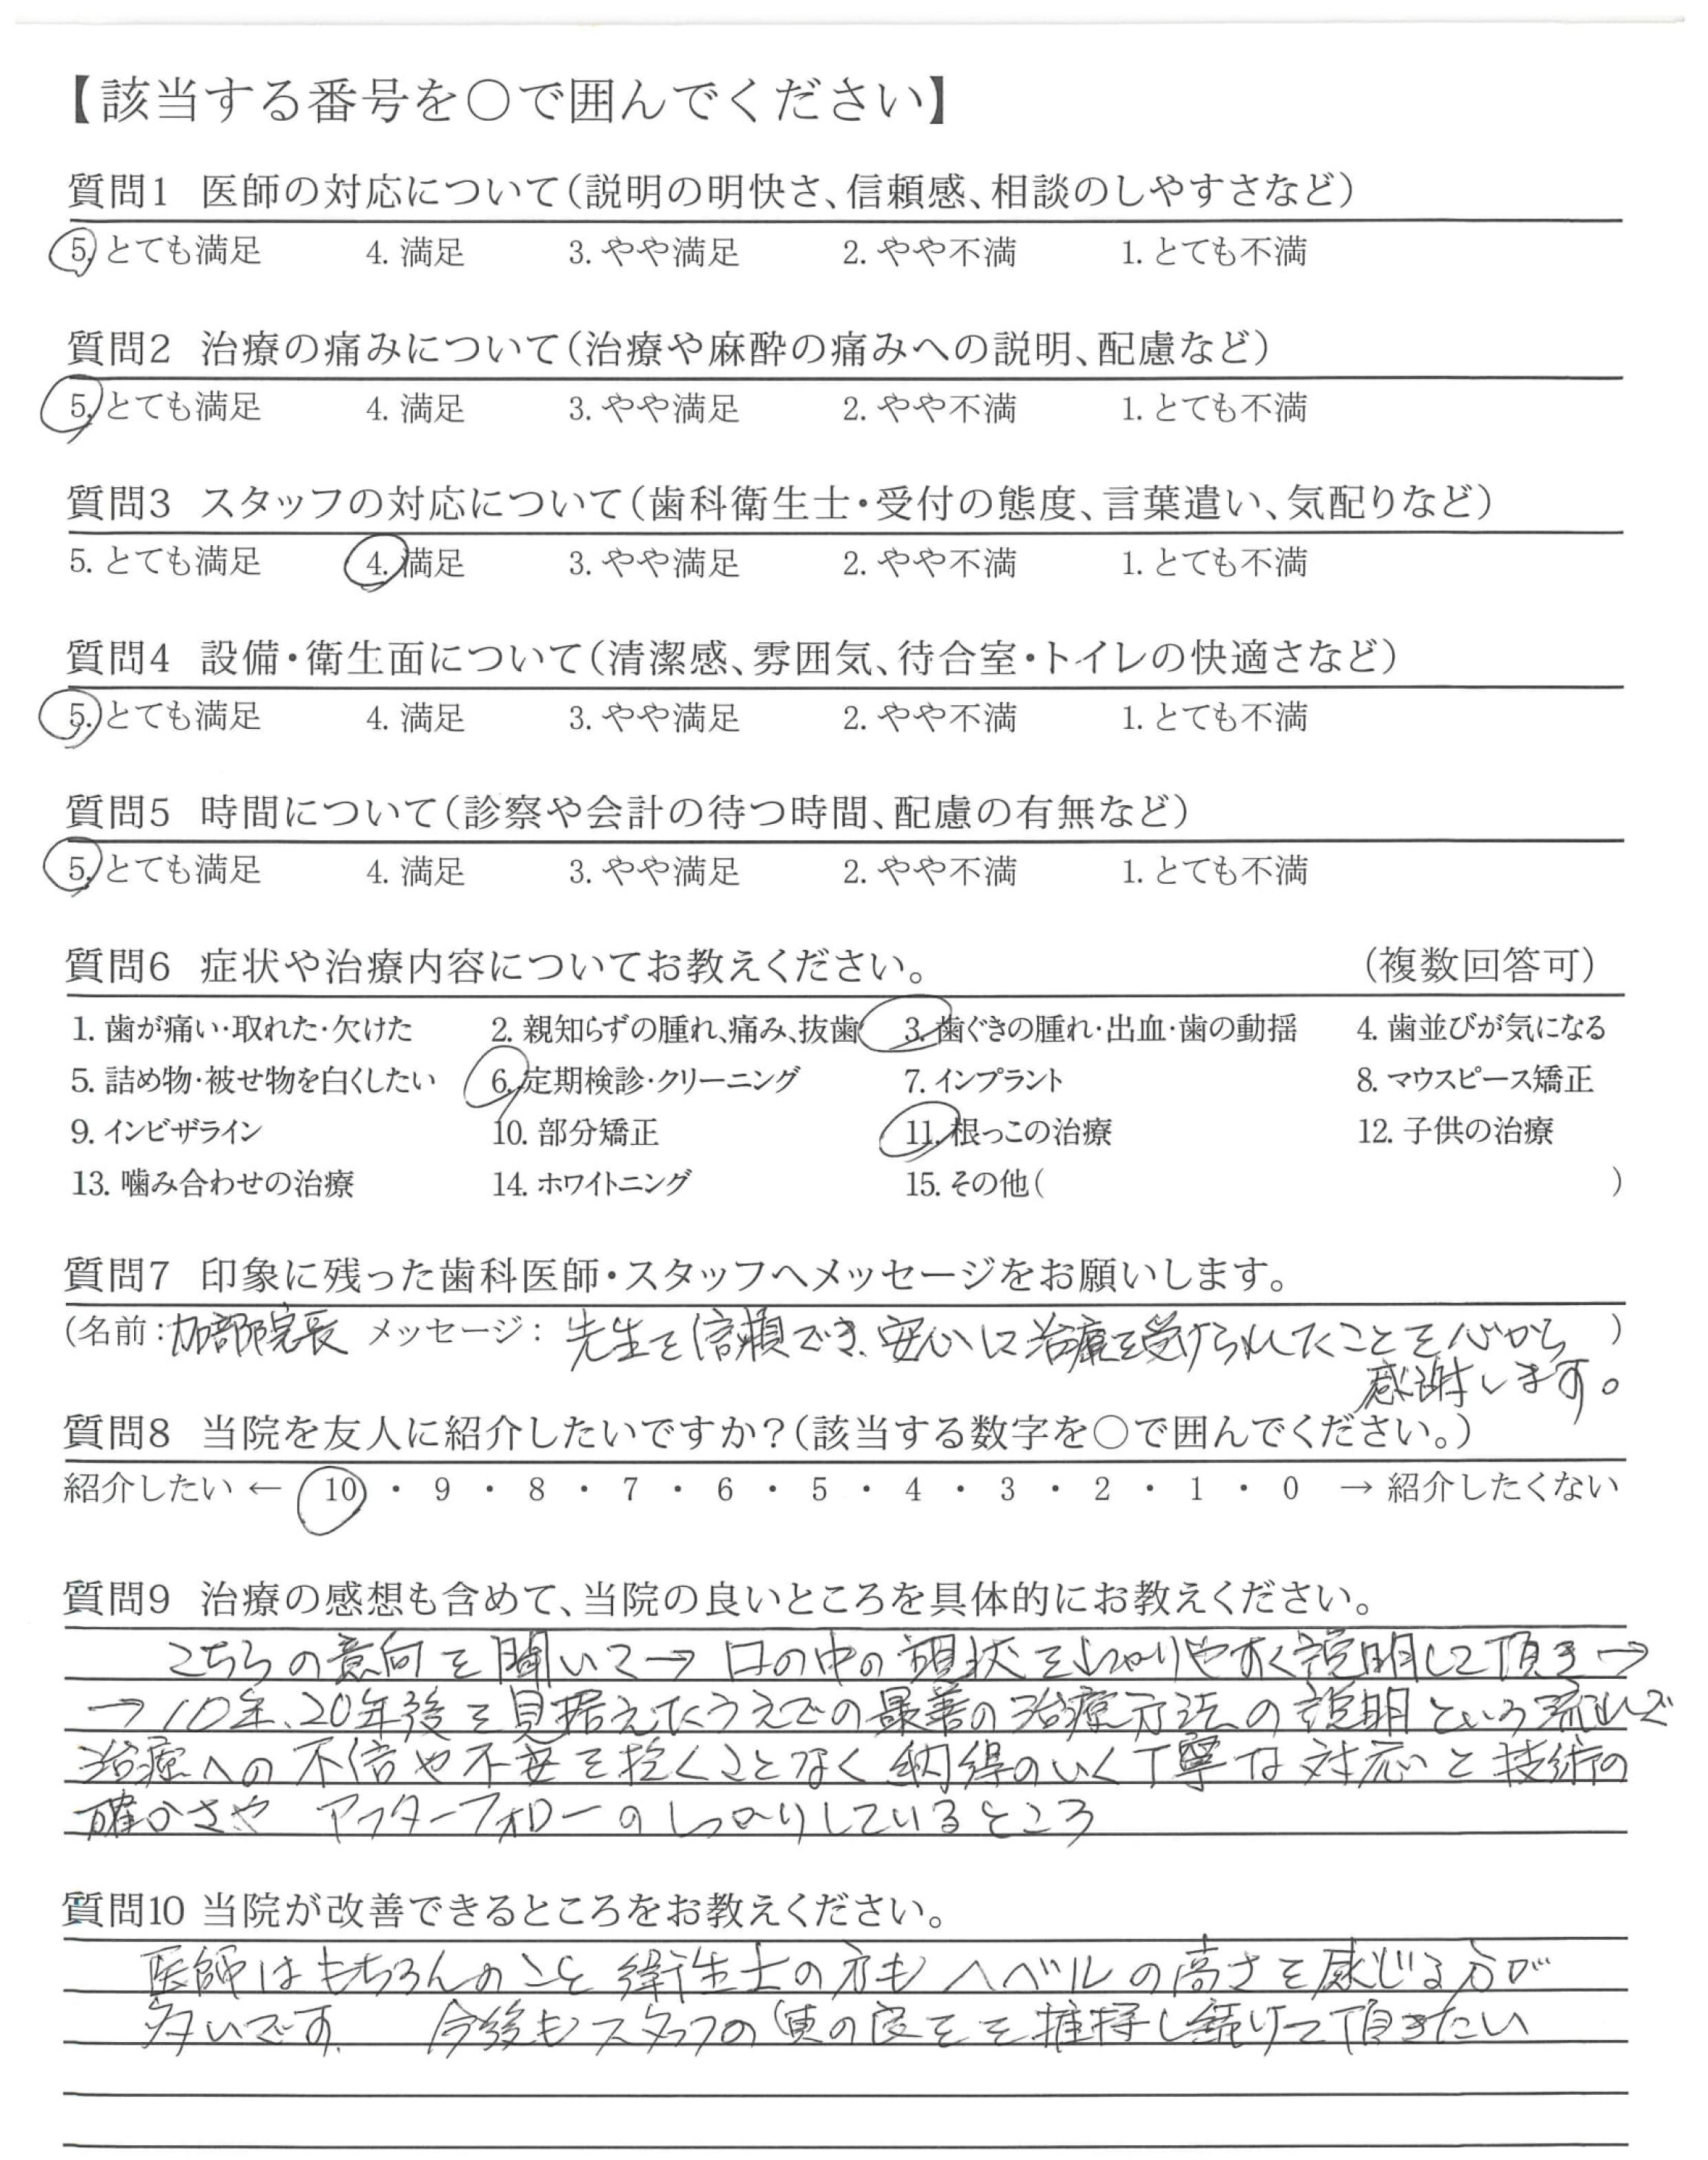 【該当する番号を○で囲んでください】
質問1 医師の対応について（説明の明快さ、信頼感、相談のしやすさなど）
5. とても満足 4. 満足 3. やや満足 2. やや不満 1. とても不満
質問2 治療の痛みについて（治療や麻酔の痛みへの説明、配慮など）
5. とても満足 4. 満足 3. やや満足 2. やや不満 1. とても不満
質問3 スタッフの対応について（歯科衛生士・受付の態度、言葉遣い、気配りなど）
5. とても満足 4. 満足 3. やや満足 2. やや不満 1. とても不満
質問4 設備・衛生面について（清潔感、雰囲気、待合室・トイレの快適さなど）
5. とても満足 4. 満足 3. やや満足 2. やや不満 1. とても不満
質問5 時間について（診察や会計の待つ時間、配慮の有無など）
5. とても満足 4. 満足 3. やや満足 2. やや不満 1. とても不満
質問6 症状や治療内容についてお教えください。 （複数回答可）
1. 歯が痛い・取れた・欠けた 2. 親知らずの腫れ、痛み、抜歯 3. 歯ぐきの腫れ・出血・歯の動揺 4. 歯並びが気になる
5. 詰め物・被せ物を白くしたい 6. 定期検診・クリーニング 7. インプラント 8. マウスピース矯正
9. インビザライン 10. 部分矯正 11. 根っこの治療 12. 子供の治療
13. 噛み合わせの治療 14. ホワイトニング 15. その他（ ）
質問7 印象に残った歯科医師・スタッフへメッセージをお願いします。
（名前：加部院長 メッセージ：先生を信頼でき、安心に治療を受けられたことを心から ）
感謝します。
質問8 当院を友人に紹介したいですか？（該当する数字を○で囲んでください。）
紹介したい ← 10 ・ 9 ・ 8 ・ 7 ・ 6 ・ 5 ・ 4 ・ 3 ・ 2 ・ 1 ・ 0 → 紹介したくない
質問9 治療の感想も含めて、当院の良いところを具体的にお教えください。
こちらの意向を聞いて→口の中の現状をわかりやすく説明して頂き→
→10年、20年後を見据えたうえでの最善の治療方法の説明という流れで
治療への不信や不安を抱くことなく納得のいく丁寧な対応と技術の
確かさや アフターフォローのしっかりしているところ
質問10 当院が改善できるところをお教えください。
医師はもちろんのこと 衛生士の方もレベルの高さを感じる方が
多いです。 今後もスタッフの質の良さを維持し続けて頂きたい